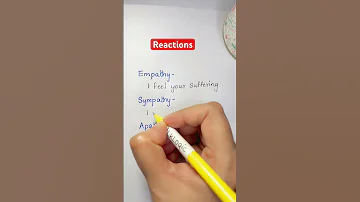 Reactions
Empathy-
I feel your suffering
Sympathy-
I